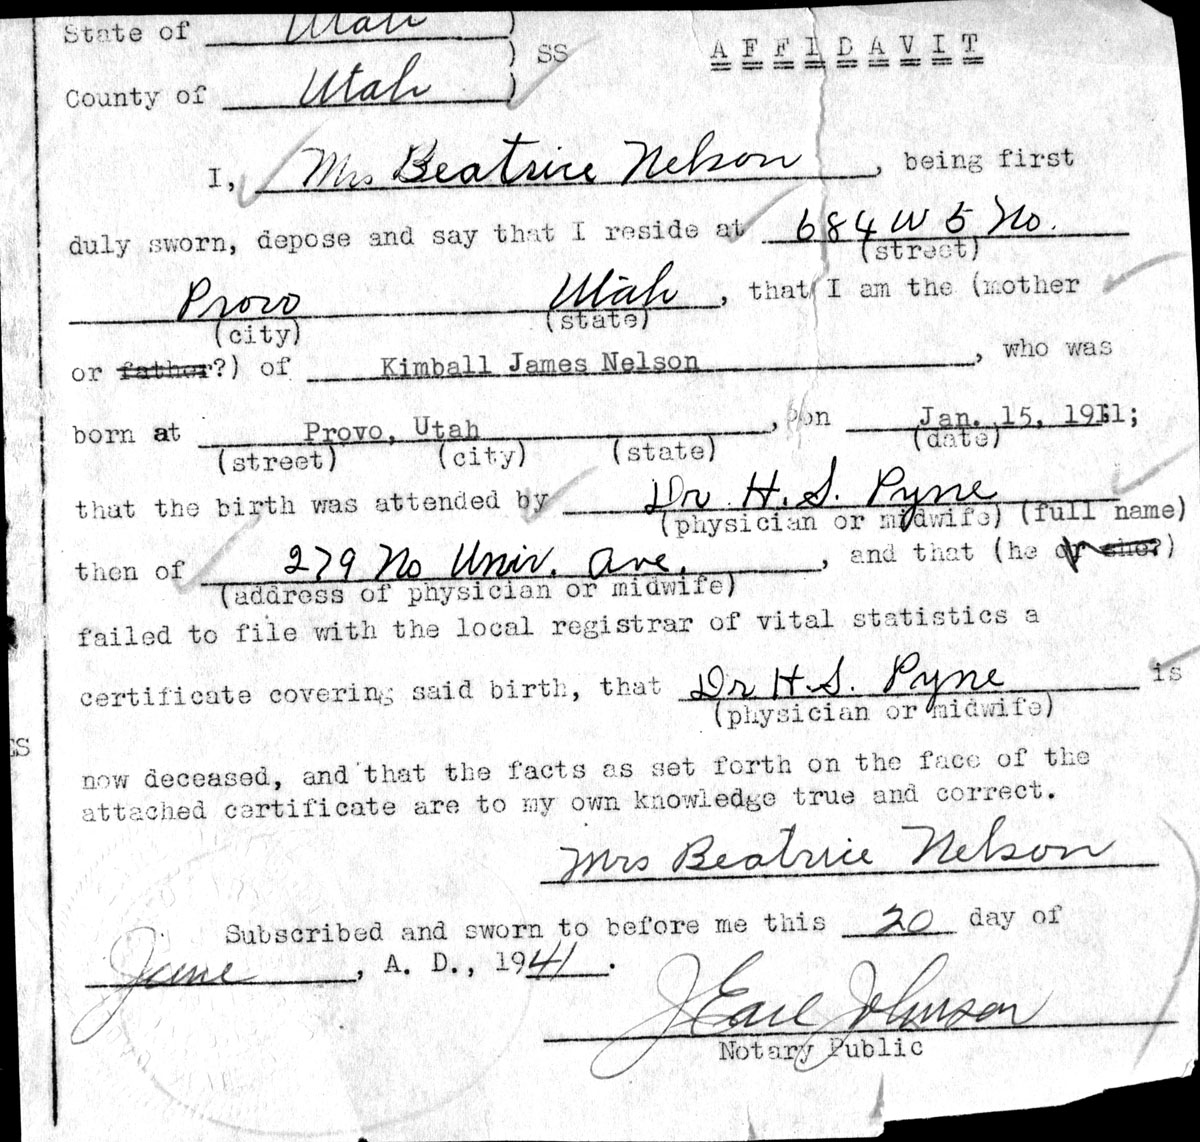 State of Utah )
) SS
AFFIDAVIT
County of Utah )
I, Mrs Beatrice Nelson, being first
duly sworn, depose and say that I reside at 684 W 5 No.
(street)
Provo Utah, that I am the (mother
(city) (state)
or father?) of Kimball James Nelson, who was
born at Provo, Utah, on Jan. 15, 1911;
(street) (city) (state) (date)
that the birth was attended by Dr H. S. Pyne
(physician or midwife) (full name)
then of 279 No Univ. Ave., and that (he or she?)
(address of physician or midwife)
failed to file with the local registrar of vital statistics a
certificate covering said birth, that Dr H. S. Pyne is
(physician or midwife)
now deceased, and that the facts as set forth on the face of the
attached certificate are to my own knowledge true and correct.
Mrs Beatrice Nelson
Subscribed and sworn to before me this 20 day of
June, A. D., 1941.
J Earl Johnson
Notary Public